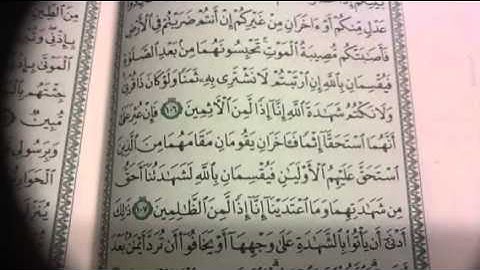 عَدْلٍ مِّنكُمْ أَوْ ءَاخَرَانِ مِنْ غَيْرِكُمْ إِنْ أَنتُمْ ضَرَبْتُمْ فِي ٱلْأَرْضِ
فَأَصَٰبَتْكُم مُّصِيبَةُ ٱلْمَوْتِ تَحْبِسُونَهُمَا مِنۢ بَعْدِ ٱلصَّلَوٰةِ
فَيُقْسِمَانِ بِٱللَّهِ إِنِ ٱرْتَبْتُمْ لَا نَشْتَرِي بِهِۦ ثَمَنًا وَلَوْ كَانَ ذَا قُرْبَىٰ
وَلَا نَكْتُمُ شَهَٰدَةَ ٱللَّهِ إِنَّآ إِذًا لَّمِنَ ٱلْأٓثِمِينَ ١٠٦ فَإِنْ عُثِرَ عَلَىٰٓ
أَنَّهُمَا ٱسْتَحَقَّآ إِثْمًا فَـَٔاخَرَانِ يَقُومَانِ مَقَامَهُمَا مِنَ ٱلَّذِينَ
ٱسْتَحَقَّ عَلَيْهِمُ ٱلْأَوْلَيَٰنِ فَيُقْسِمَانِ بِٱللَّهِ لَشَهَٰدَتُنَآ أَحَقُّ
مِن شَهَٰدَتِهِمَا وَمَا ٱعْتَدَيْنَآ إِنَّآ إِذًا لَّمِنَ ٱلظَّٰلِمِينَ ١٠٧ ذَٰلِكَ
أَدْنَىٰٓ أَن يَأْتُوا۟ بِٱلشَّهَٰدَةِ عَلَىٰ وَجْهِهَآ أَوْ يَخَافُوٓا۟ أَن تُرَدَّ أَيْمَٰنٌۢ بَعْدَ
مِنَ ٱلطِّينِ
بِإِذْنِي
ٱلْمَوْتَىٰ
جِئْتَهُم
مُّبِينٌ
وَبِرَسُولِي